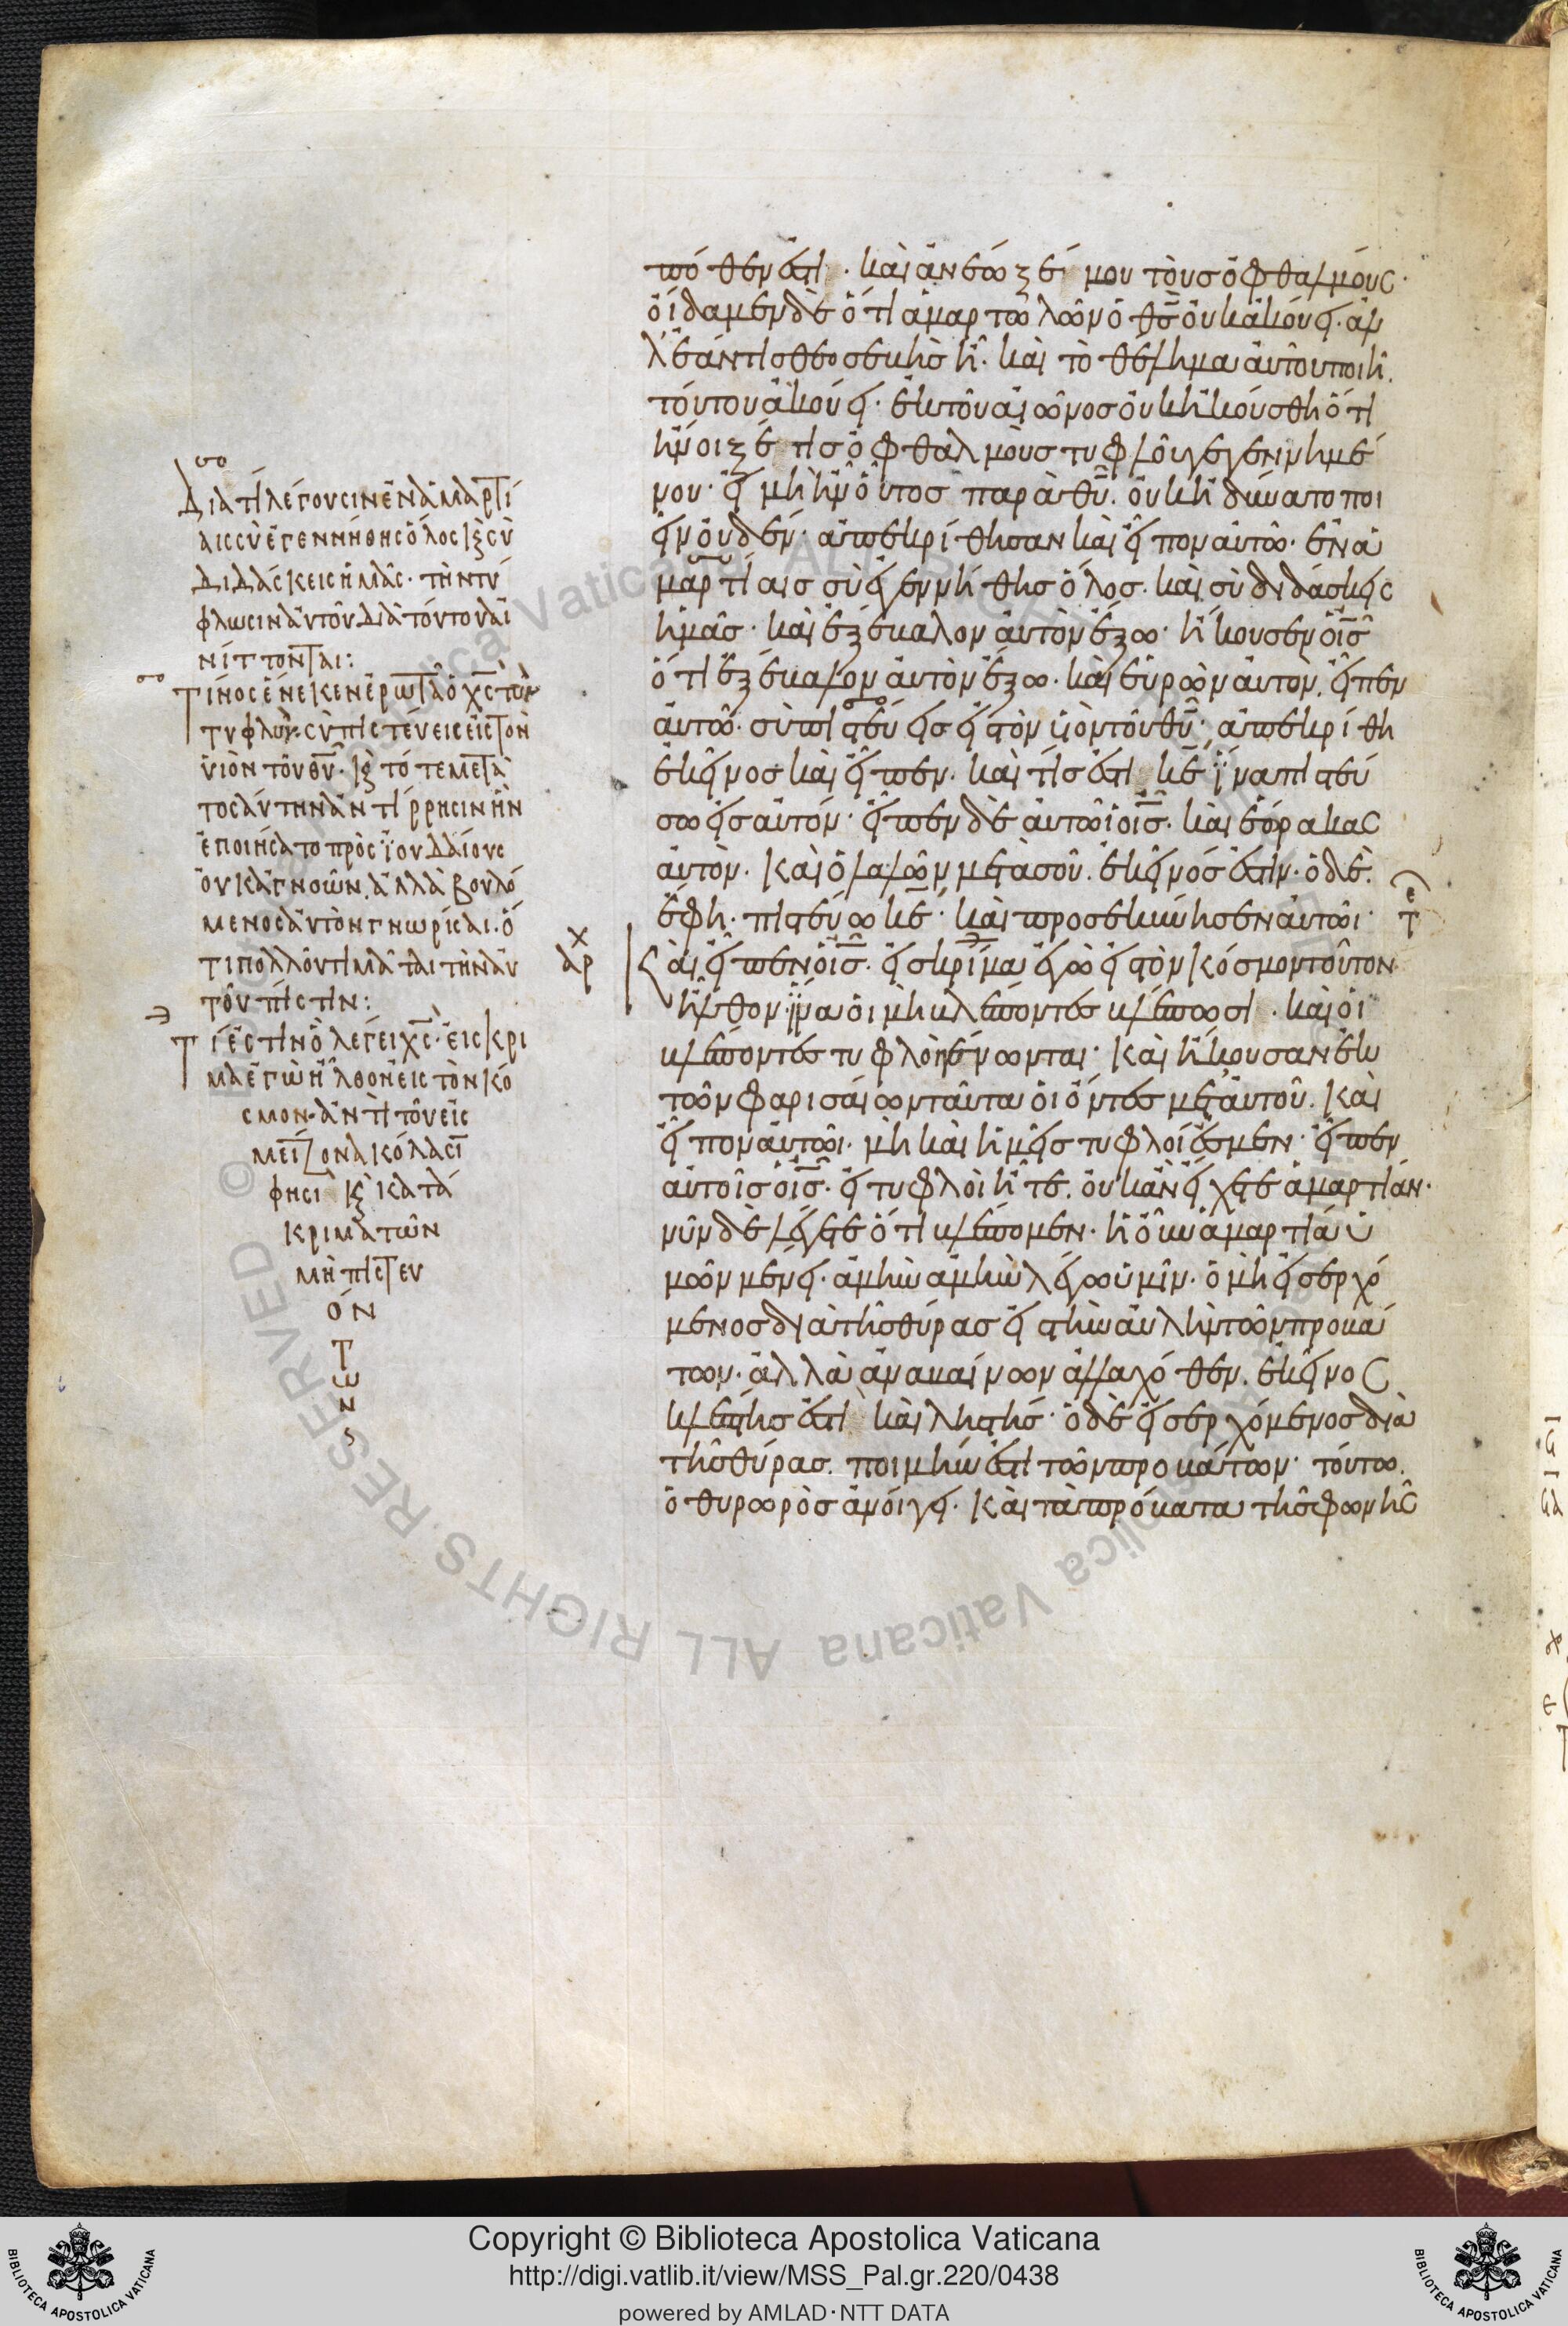 πόθεν ἐστὶ. καὶ ἀνέωξέ μου τοὺς ὀφθαλμούς.
οἴδαμεν δὲ ὅτι ἁμαρτωλῶν ὁ θς̅ οὐκ ἀκούει. ἀλ
λ' ἐάν τις θεοσεβὴς ἦ. καὶ τὸ θέλημα αὐτοῦ ποιῆ.
τούτου ἀκούει. ἐκ τοῦ αἰῶνος οὐκ ἠκούσθη ὅτι
ἤνοιξέ τις ὀφθαλμοὺς τυφλοῦ γεγεννημέ
νου. εἰ μὴ ἦν οὗτος παρὰ θυ̅. οὐκ ἠδύνατο ποι
εῖν οὐδέν. ἀπεκρίθησαν καὶ εἶπον αὐτῶ. ἐν ἁ
μαρτίαις σὺ ἐγεννήθης ὅλος. καὶ σὺ διδάσκεις
ἡμᾶς. καὶ ἐξέβαλον αὐτὸν ἔξω. ἤκουσεν ὁ ις̅
ὅτι ἐξέβαλον αὐτὸν ἔξω. καὶ εὑρὼν αὐτὸν. εἶπεν
αὐτῶ. σὺ πιστεύεις εἰς τὸν υἱὸν τοῦ θυ̅. ἀπεκρίθη
ἐκεῖνος καὶ εἶπεν. καὶ τίς ἐστι κε̅ ἵνα πιστεύ
σω εἰς αὐτόν. εἶπεν δὲ αὐτῶι ὁ ις̅. καὶ ἑώρακας
αὐτὸν. καὶ ὁ λαλῶν μετὰ σοῦ. ἐκεῖνός ἐστιν. ὁ δὲ.
ἔφη. πιστεύω κε̅. καὶ προσεκύνησεν αὐτῶι.
Καὶ εἶπεν ὁ ις̅. εἰς κρίμα ἐγὼ εἰς τὸν κόσμον τοῦτον
ἦλθον. ἵνα οἱ μὴ βλέποντες βλέπωσι. καὶ οἱ
βλέποντες τυφλοὶ γένωνται. καὶ ἤκουσαν ἐκ
τῶν φαρισαίων ταῦτα οἱ ὄντες μετ' αὐτοῦ. καὶ
εἶπον αὐτῶι. μὴ καὶ ἡμεῖς τυφλοί ἐσμεν. εἶπεν
αὐτοῖς ὁ ις̅. εἰ τυφλοὶ ἦτε. οὐκ ἂν εἴχετε ἁμαρτίαν.
νῦν δὲ λέγετε ὅτι βλέπομεν. ἡ οὖν ἁμαρτία ὑ
μῶν μένει. ἀμὴν ἀμὴν λέγω ὑμῖν. ὁ μὴ εἰσερχό
μενος διὰ τῆς θύρας εἰς τὴν αὐλὴν τῶν προβά
των. ἀλλὰ ἀναβαίνων ἀλλαχόθεν. ἐκεῖνος
κλέπτης ἐστὶ καὶ ληστής. ὁ δὲ εἰσερχόμενος διὰ
τῆς θύρας. ποιμήν ἐστι τῶν προβάτων. τούτω.
ὁ θυρωρὸς ἀνοίγει. καὶ τὰ πρόβατα τῆς φωνῆς
Διατί λέγουσιν ἐν ἁμαρτί
αις σὺ ἐγεννήθης ὅλος κ̀ σὺ
διδάσκεις ἡμᾶς. τὴν τύ
φλωσιν αὐτοῦ διὰ τούτου αἰ
νίττονται:
Τίνος ἕνεκεν ἐρωτᾶ ὁ χς̅ τὸν
τυφλόν. σὺ πιστεύεις εἰς τὸν
υἱὸν τοῦ θυ̅. κ̀ τό τε μετὰ
τοσαύτην ἀντίρρησιν ἣν
ἐποιήσατο πρὸς ἰουδαίους
οὐκ ἀγνοῶν. ἀλλὰ βουλό
μενος αὐτὸν γνωρίσαι. ὅ
τι πολλοῦ τιμᾶται τὴν αὐ
τοῦ πίστιν:
Τί ἐστιν ὃ λέγει χς̅. εἰς κρι
μα ἐγὼ ἦλθον εἰς τὸν κό
σμον. ἀντὶ τοῦ εἰς
μείζονα κόλασι
φησι κ̀ κατά
κριμα τῶν
μὴ πιστευ
όν
τ
ω
ν
αρχ
τε